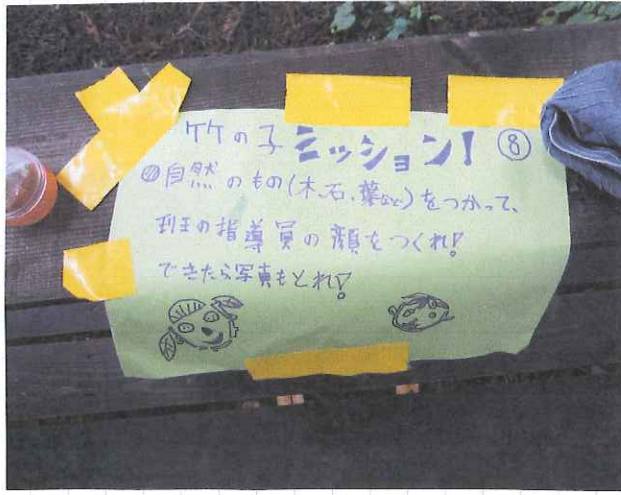 竹の子ミッション! ⑧
◎自然のもの(木、石、葉など)をつかって、
班の指導員の顔をつくれ!
できたら写真もとれ!